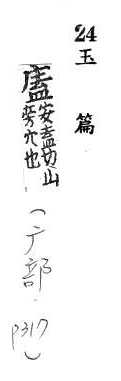 24 玉篇
廅 安盍切山
旁穴也
(广部. p317)